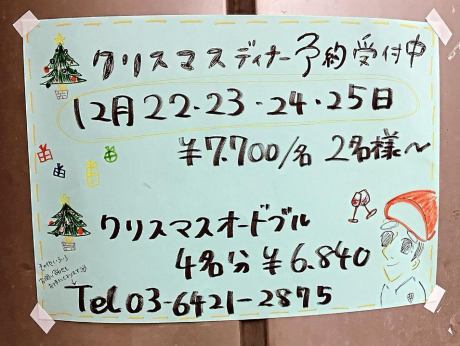 クリスマスディナー予約受付中
12月22・23・24・25日
¥7.700/名 2名様〜
クリスマスオードブル
4名分¥6.840
Tel 03-6421-2875